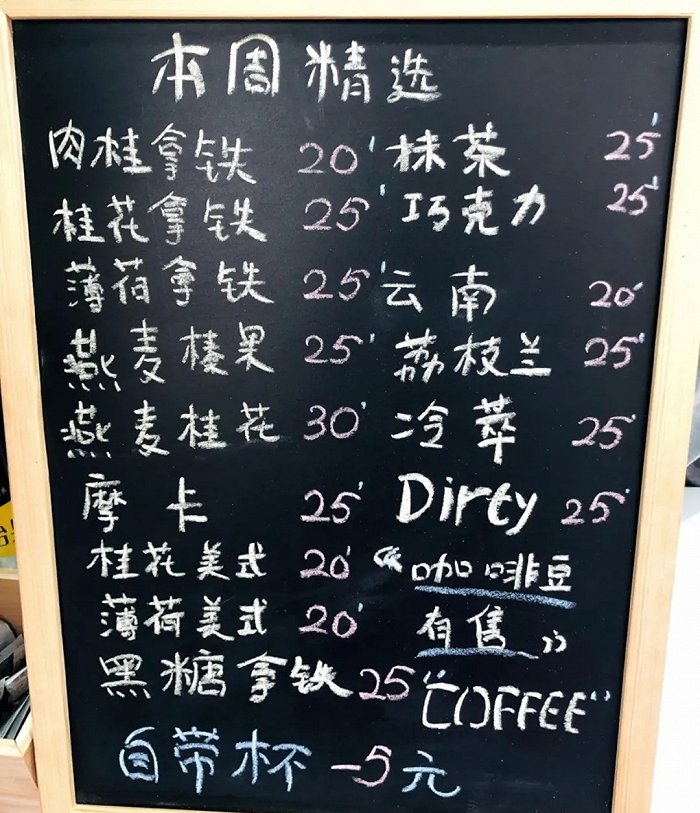 本周精选
肉桂拿铁 20' 抹茶 25'
桂花拿铁 25' 巧克力 25'
薄荷拿铁 25' 云南 20'
燕麦榛果 25' 荔枝兰 25'
燕麦桂花 30' 冷萃 25'
摩卡 25' Dirty 25'
桂花美式 20' “咖啡豆
薄荷美式 20' 有售”
黑糖拿铁 25 “COFFEE”
自带杯 -5元